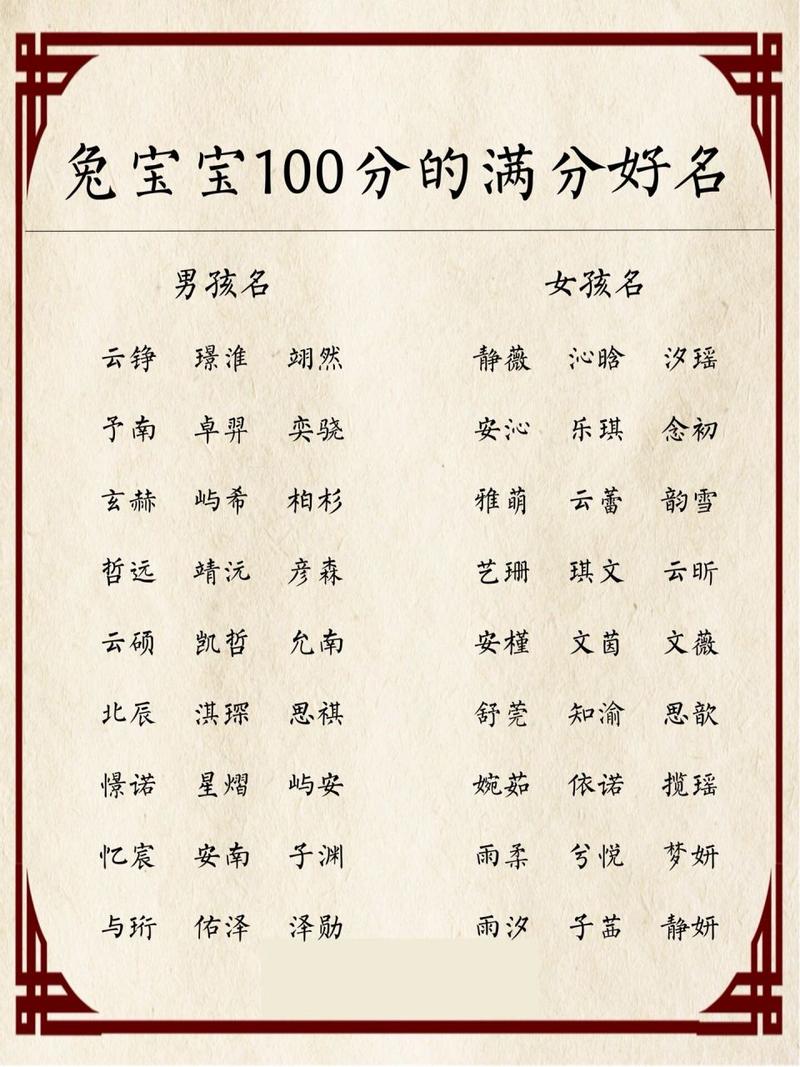 兔宝宝100分的满分好名
男孩名 女孩名
云铮 璟淮 翊然 静薇 沁晗 汐瑶
予南 卓羿 奕骁 安沁 乐琪 念初
玄赫 屿希 柏杉 雅萌 云蕾 韵雪
哲远 靖沅 彦森 艺珊 琪文 云昕
云硕 凯哲 允南 安槿 文茵 文薇
北辰 淇琛 思祺 舒莞 知渝 思歆
憬诺 星熠 屿安 婉茹 依诺 揽瑶
忆宸 安南 子渊 雨柔 兮悦 梦妍
与珩 佑泽 泽勋 雨汐 子茜 静妍